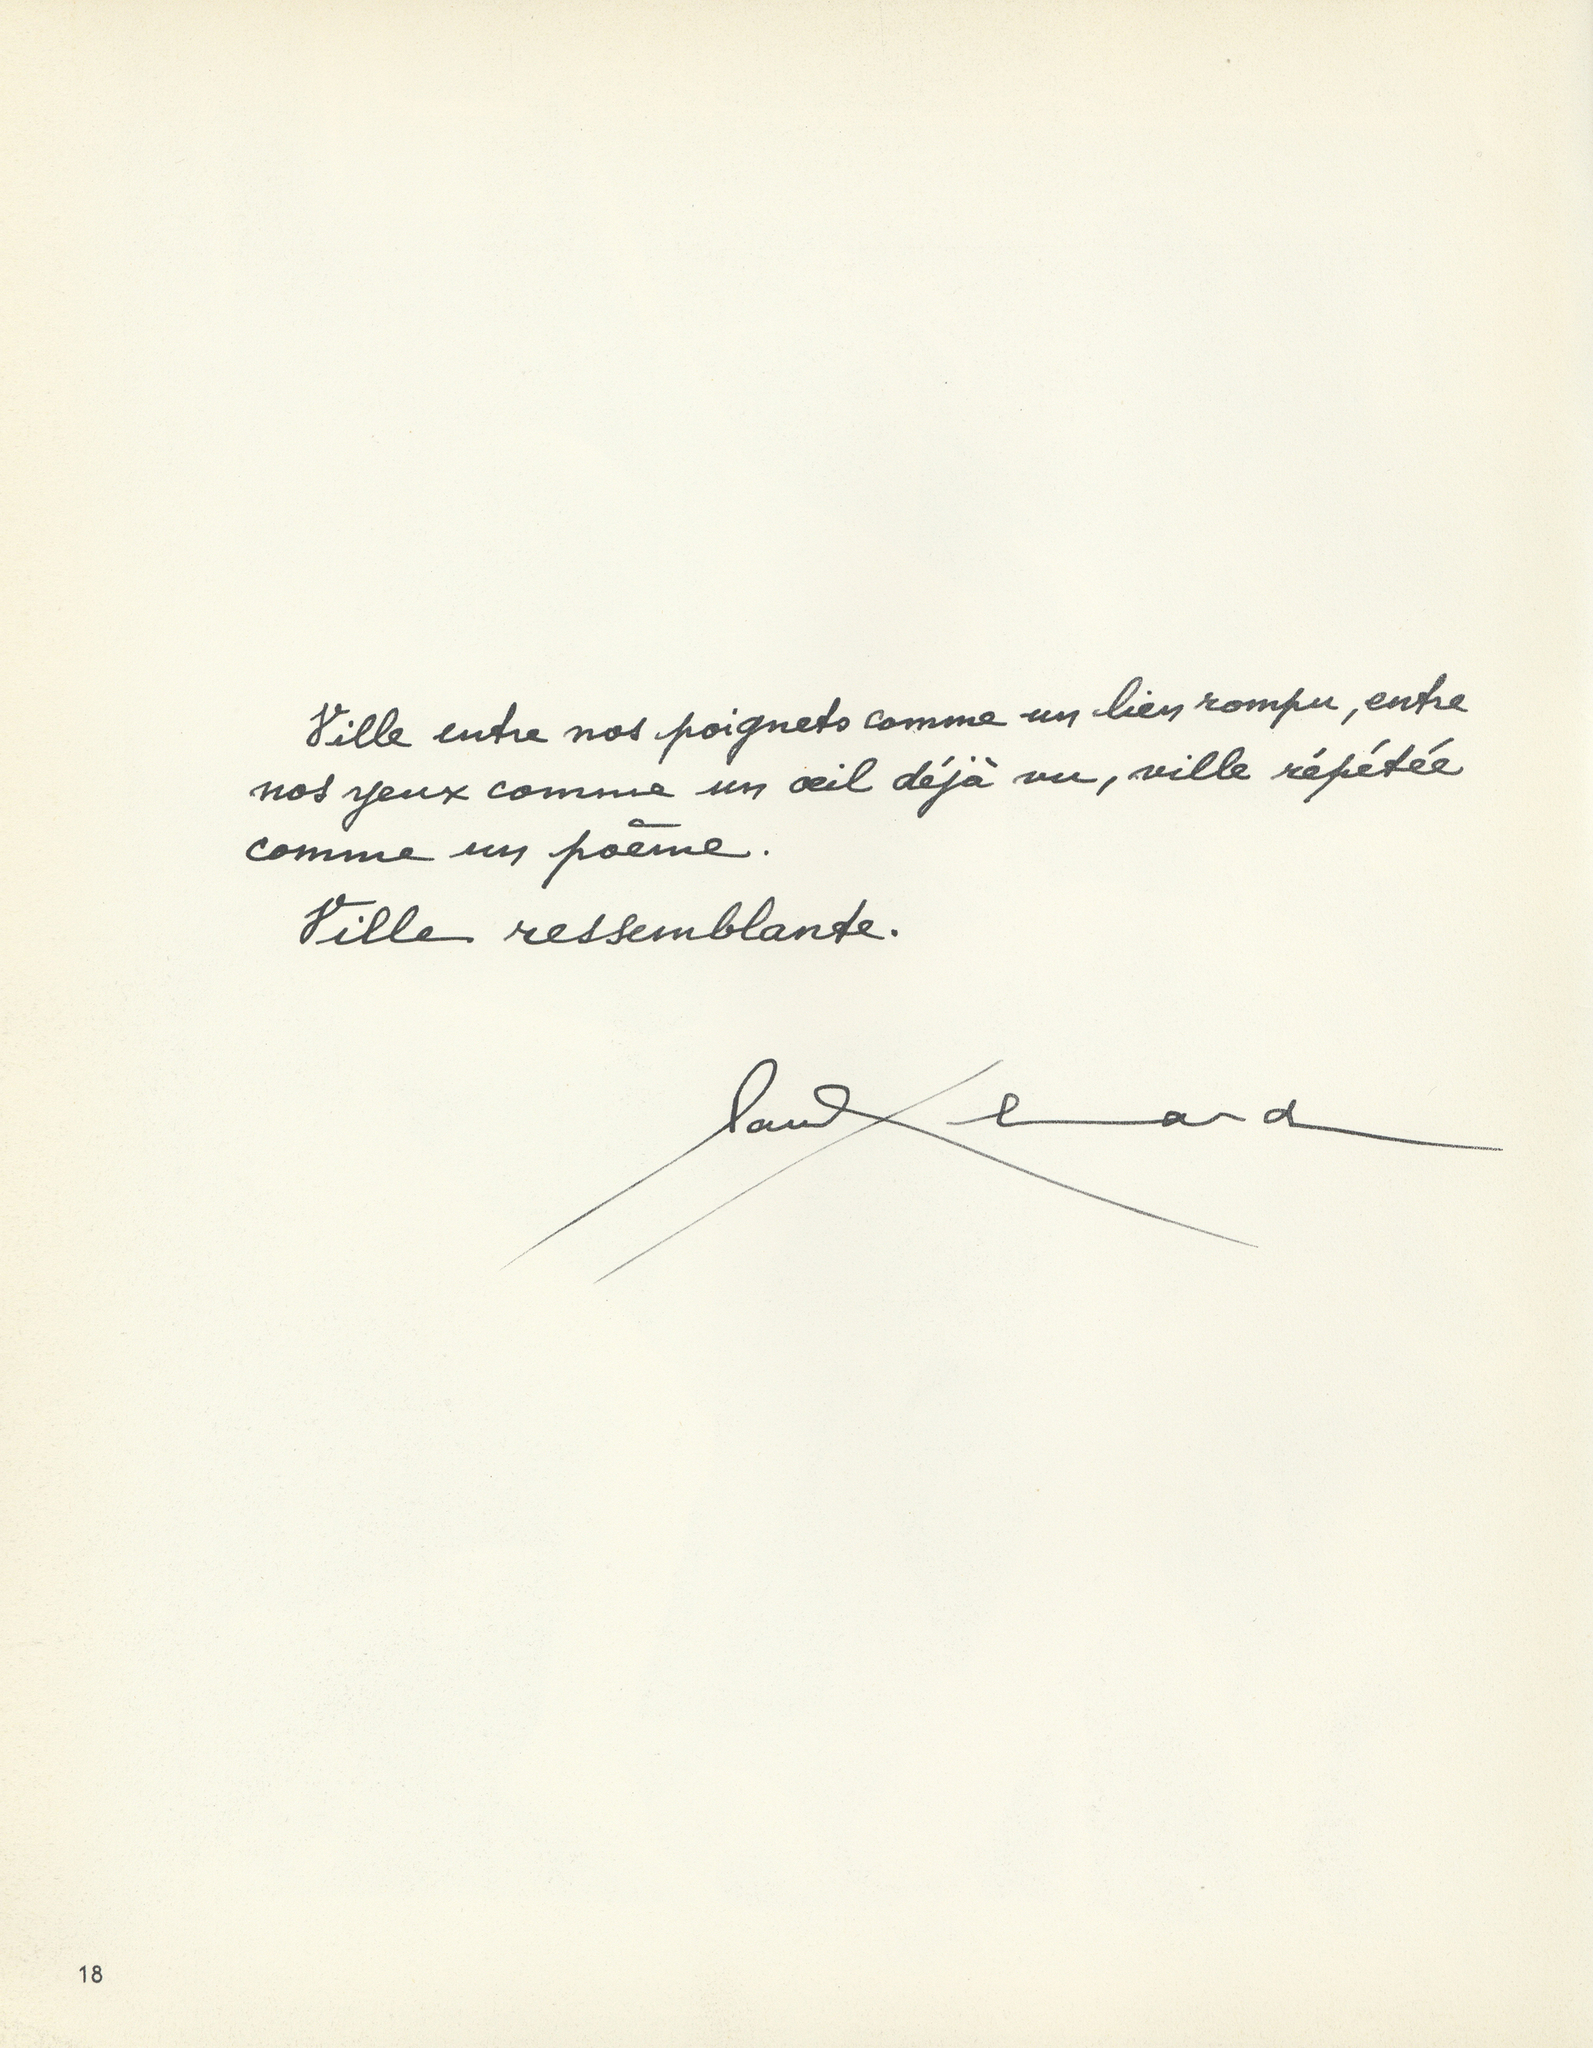 Ville entre nos poignets comme un lien rompu, entre
nos yeux comme un œil déjà vu, ville répétée
comme un poême.
Ville ressemblante.
Paul Eluard
18